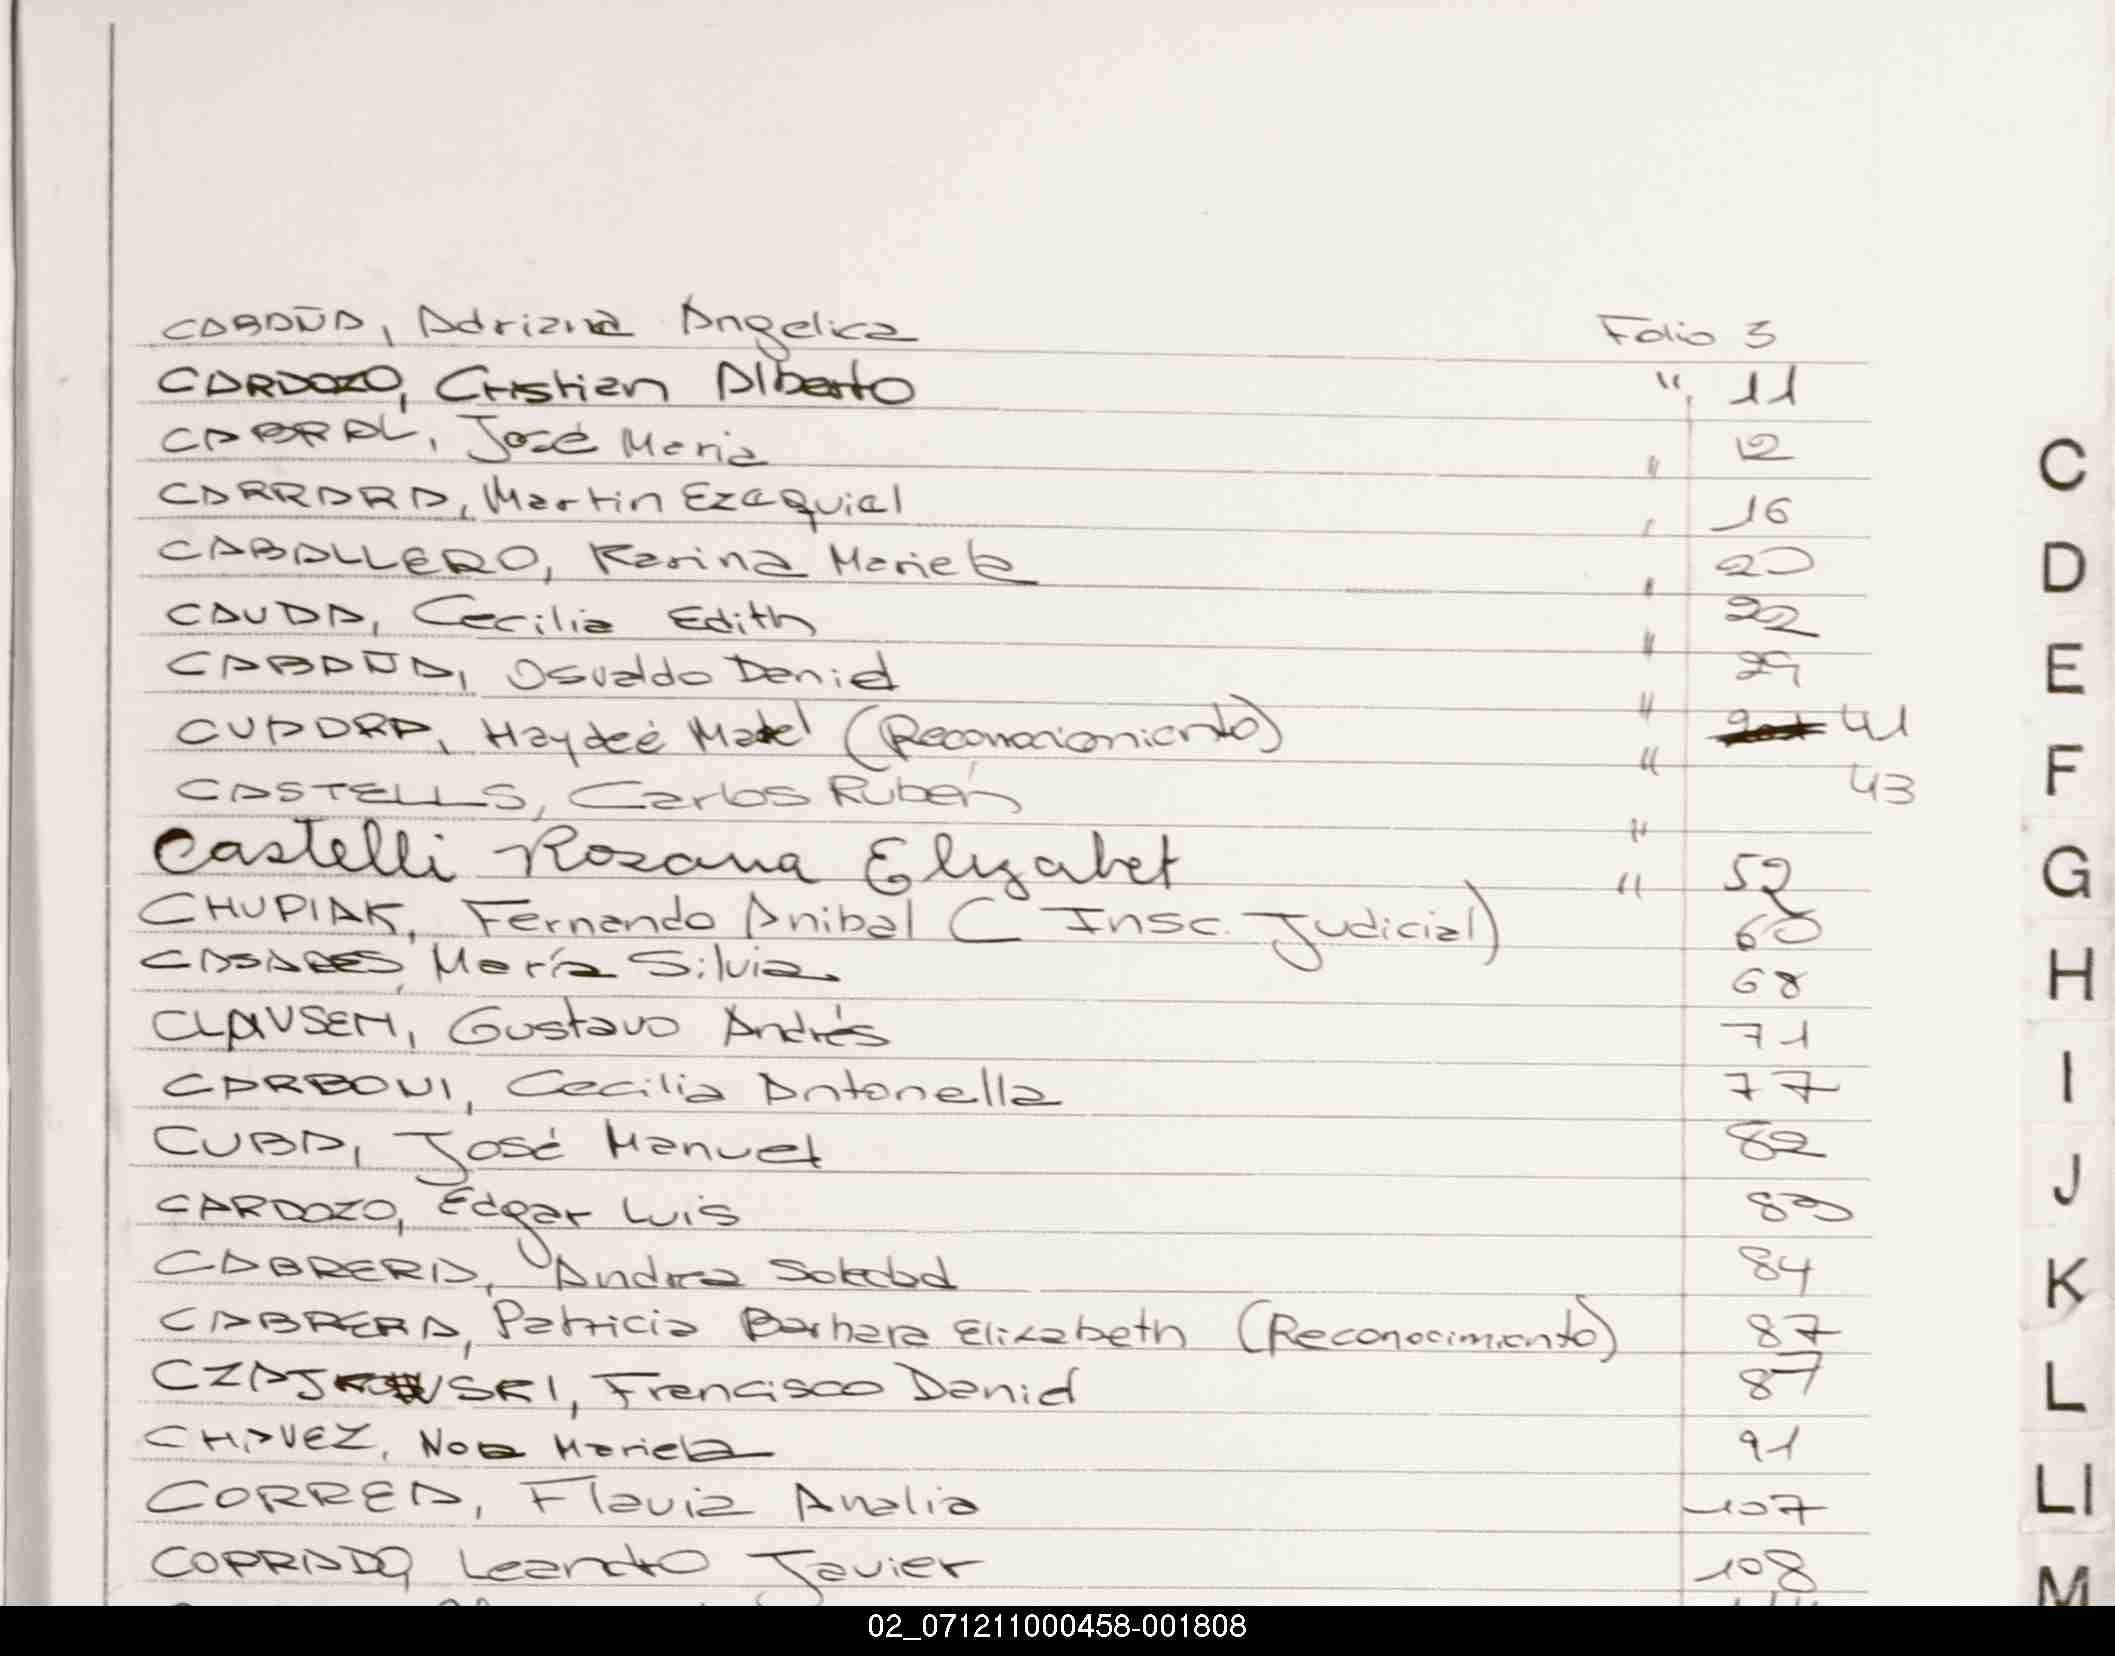 CABAÑA, Adriana Angelica Folio 3
CARDOZO, Cristian Alberto " 11
CABRAL, José Maria " 12
CARRARA, Martin Ezequiel " 16
CABALLERO, Karina Mariela " 20
CAUDA, Cecilia Edith " 22
CABAÑA, Osvaldo Daniel " 29
CUADRA, Haydeé Mabel (Reconocioniento) " 41
CASTELLS, Carlos Rubén " 43
Castelli Rozana Elizabet " 52
CHUPIAK, Fernando Anibal ( Insc. Judicial) 60
CASARES, María Silvia 68
CLAUSEN, Gustavo Andrés 71
CARBONI, Cecilia Antonella 77
CUBA, José Manuel 82
CARDOZO, Edgar Luis 83
CABRERA, Andrea Soledad 84
CABRERA, Patricia Barbara Elizabeth (Reconocimiento) 87
CZAJKOWSKI, Francisco Daniel 87
CHAVEZ, Noa Mariela 91
CORREA, Flavia Analia 107
CORRADO, Leandro Javier 108
C
D
E
F
G
H
I
J
K
L
Ll
M
02_071211000458-001808